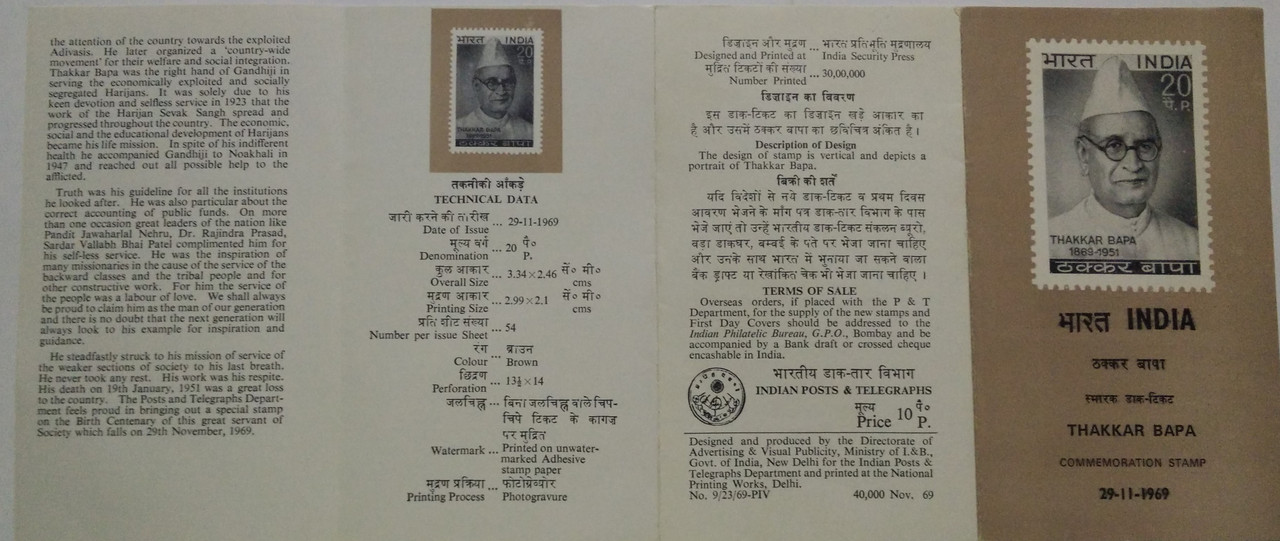 the attention of the country towards the exploited
Adivasis. He later organized a 'country-wide
movement' for their welfare and social integration.
Thakkar Bapa was the right hand of Gandhiji in
serving the economically exploited and socially
segregated Harijans. It was solely due to his
keen devotion and selfless service in 1923 that the
work of the Harijan Sevak Sangh spread and
progressed throughout the country. The economic,
social and the educational development of Harijans
became his life mission. In spite of his indifferent
health he accompanied Gandhiji to Noakhali in
1947 and reached out all possible help to the
afflicted.
Truth was his guideline for all the institutions
he looked after. He was also particular about the
correct accounting of public funds. On more
than one occasion great leaders of the nation like
Pandit Jawaharlal Nehru, Dr. Rajindra Prasad,
Sardar Vallabh Bhai Patel complimented him for
his self-less service. He was the inspiration of
many missionaries in the cause of the service of the
backward classes and the tribal people and for
other constructive work. For him the service of
the people was a labour of love. We shall always
be proud to claim him as the man of our generation
and there is no doubt that the next generation will
always look to his example for inspiration and
guidance.
He steadfastly struck to his mission of service of
the weaker sections of society to his last breath.
He never took any rest. His work was his respite.
His death on 19th January, 1951 was a great loss
to the country. The Posts and Telegraphs Depart-
ment feels proud in bringing out a special stamp
on the Birth Centenary of this great servant of
Society which falls on 29th November, 1969.
भारत INDIA
20
पै. P.
THAKKAR BAPA
1869-1951
ठक्कर बापा
तकनीकी आँकड़े
TECHNICAL DATA
जारी करने की तारीख
Date of Issue ... 29-11-1969
मूल्य वर्ग ... 20 पै०
Denomination P.
कुल आकार ... 3.34×2.46 सें० मी०
Overall Size cms
मुद्रण आकार ... 2.99×2.1 सें० मी०
Printing Size cms
प्रति शीट संख्या ... 54
Number per issue Sheet
रंग ... ब्राउन
Colour Brown
छिद्रण ... 13½×14
Perforation
जलचिह्न ... बिना जलचिह्न वाले चिप-
चिपे टिकट के कागज़
पर मुद्रित
Watermark ... Printed on unwater-
marked Adhesive
stamp paper
मुद्रण प्रक्रिया ... फोटोग्रेव्योर
Printing Process Photogravure
डिज़ाइन और मुद्रण ... भारत प्रतिभूति मुद्रणालय
Designed and Printed at India Security Press
मुद्रित टिकटों की संख्या ... 30,00,000
Number Printed
डिज़ाइन का विवरण
इस डाक-टिकट का डिज़ाइन खड़े आकार का
है और उसमें ठक्कर बापा का छविचित्र अंकित है।
Description of Design
The design of stamp is vertical and depicts a
portrait of Thakkar Bapa.
बिक्री की शर्तें
यदि विदेशों से नये डाक-टिकट व प्रथम दिवस
आवरण भेजने के माँग पत्र डाक-तार विभाग के पास
भेजे जाएं तो उन्हें भारतीय डाक-टिकट संकलन ब्यूरो,
बड़ा डाकघर, बम्बई के पते पर भेजा जाना चाहिए
और उनके साथ भारत में भुनाया जा सकने वाला
बैंक ड्राफ्ट या रेखांकित चेक भी भेजा जाना चाहिए।
TERMS OF SALE
Overseas orders, if placed with the P & T
Department, for the supply of the new stamps and
First Day Covers should be addressed to the
Indian Philatelic Bureau, G.P.O., Bombay and be
accompanied by a Bank draft or crossed cheque
encashable in India.
भारतीय डाक-तार विभाग
INDIAN POSTS & TELEGRAPHS
मूल्य 10 पै०
Price P.
Designed and produced by the Directorate of
Advertising & Visual Publicity, Ministry of I.&B.,
Govt. of India, New Delhi for the Indian Posts &
Telegraphs Department and printed at the National
Printing Works, Delhi.
No. 9/23/69-PIV 40,000 Nov. 69
भारत INDIA
20
पै. P.
THAKKAR BAPA
1869-1951
ठक्कर बापा
भारत INDIA
ठक्कर बापा
स्मारक डाक-टिकट
THAKKAR BAPA
COMMEMORATION STAMP
29-11-1969